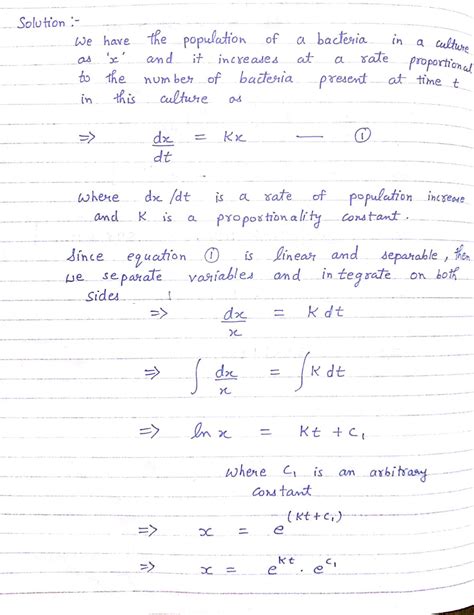 Solution :-
We have the population of a bacteria in a culture
as 'x' and it increases at a rate proportional
to the number of bacteria present at time t
in this culture as
=> dx/dt = Kx — ①
where dx/dt is a rate of population increase
and K is a proportionality constant.
Since equation ① is linear and separable, then
we separate variables and integrate on both
sides
=> dx/x = K dt
=> ∫ dx/x = ∫ K dt
=> ln x = Kt + C₁
where C₁ is an arbitrary
constant
=> x = e^(Kt + C₁)
=> x = e^Kt . e^C₁